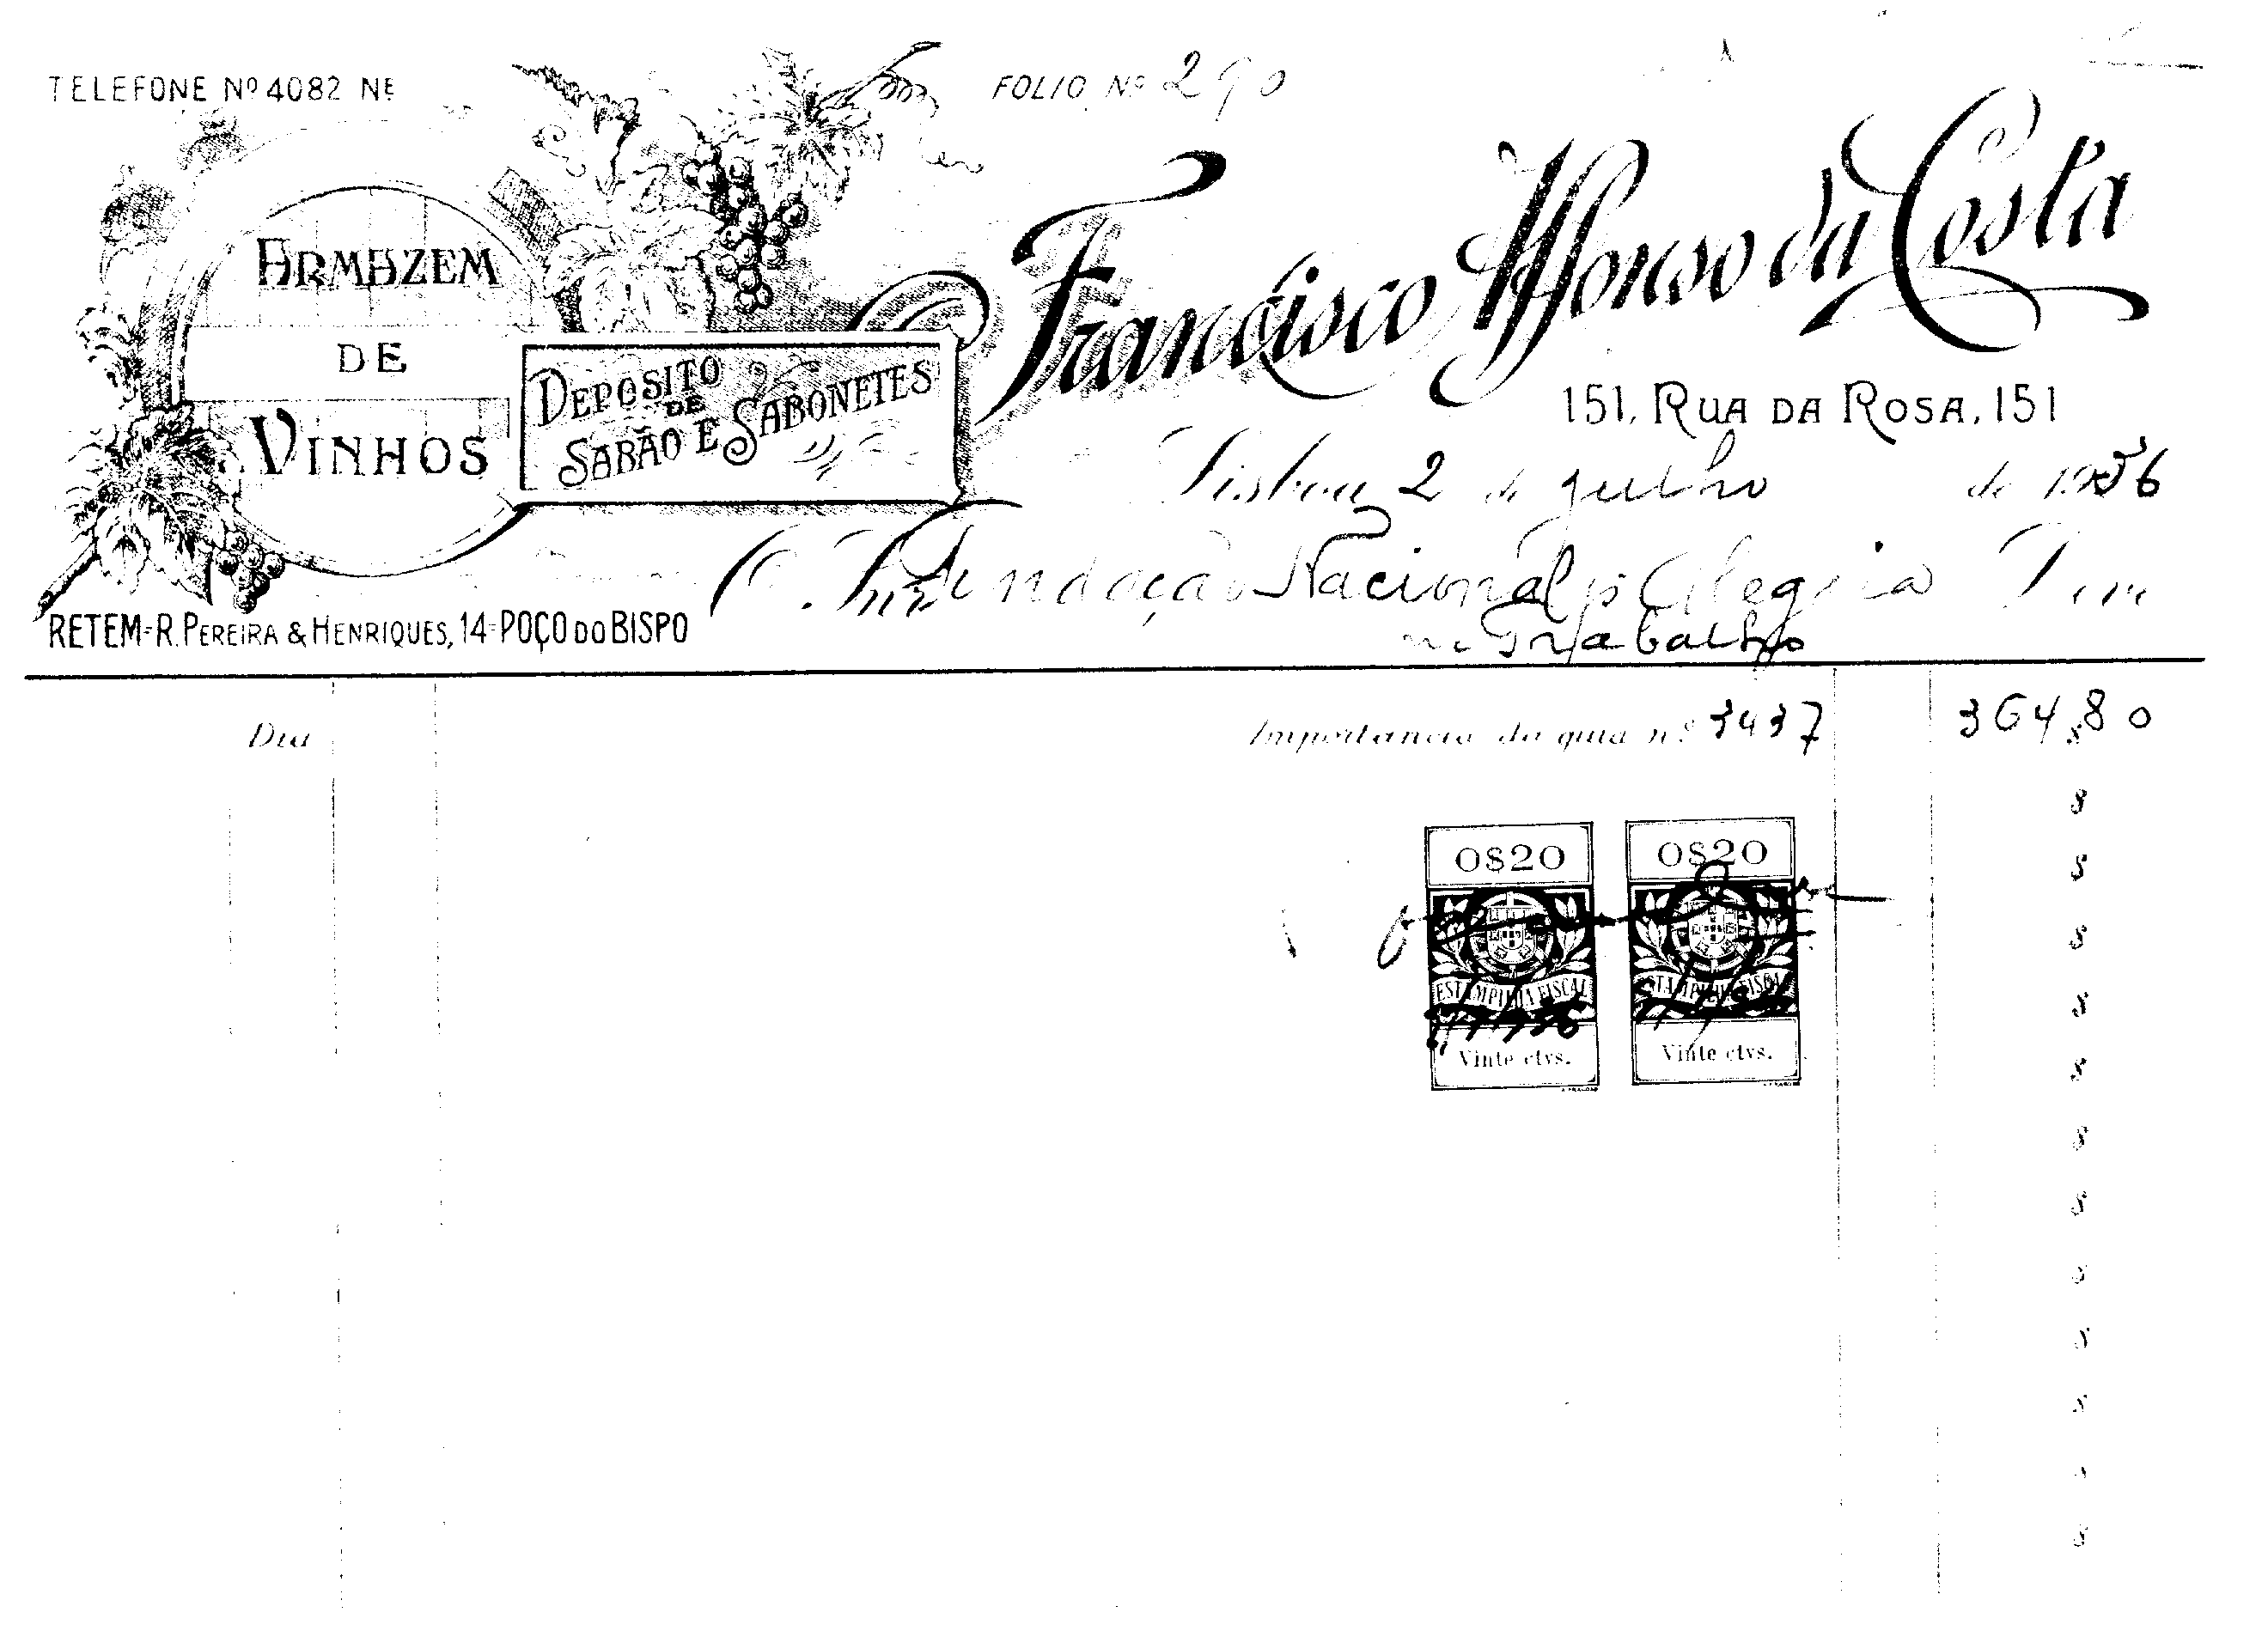 TELEFONE Nº 4082 NE
FOLIO Nº 290
Francisco Affonso da Costa
ARMAZEM
DE
VINHOS
DEPOSITO
DE
SABÃO E SABONETES
151, RUA DA ROSA, 151
Lisboa, 2 de julho de 1936
Fundação Nacional p. Alegria
no Trabalho
RETEM=R. PEREIRA & HENRIQUES, 14=POÇO DO BISPO
Dia
Importancia da guia nº 3437 364$80
0$20 0$20
ESTAMPILHA FISCAL ESTAMPILHA FISCAL
Vinte ctvs. Vinte ctvs.